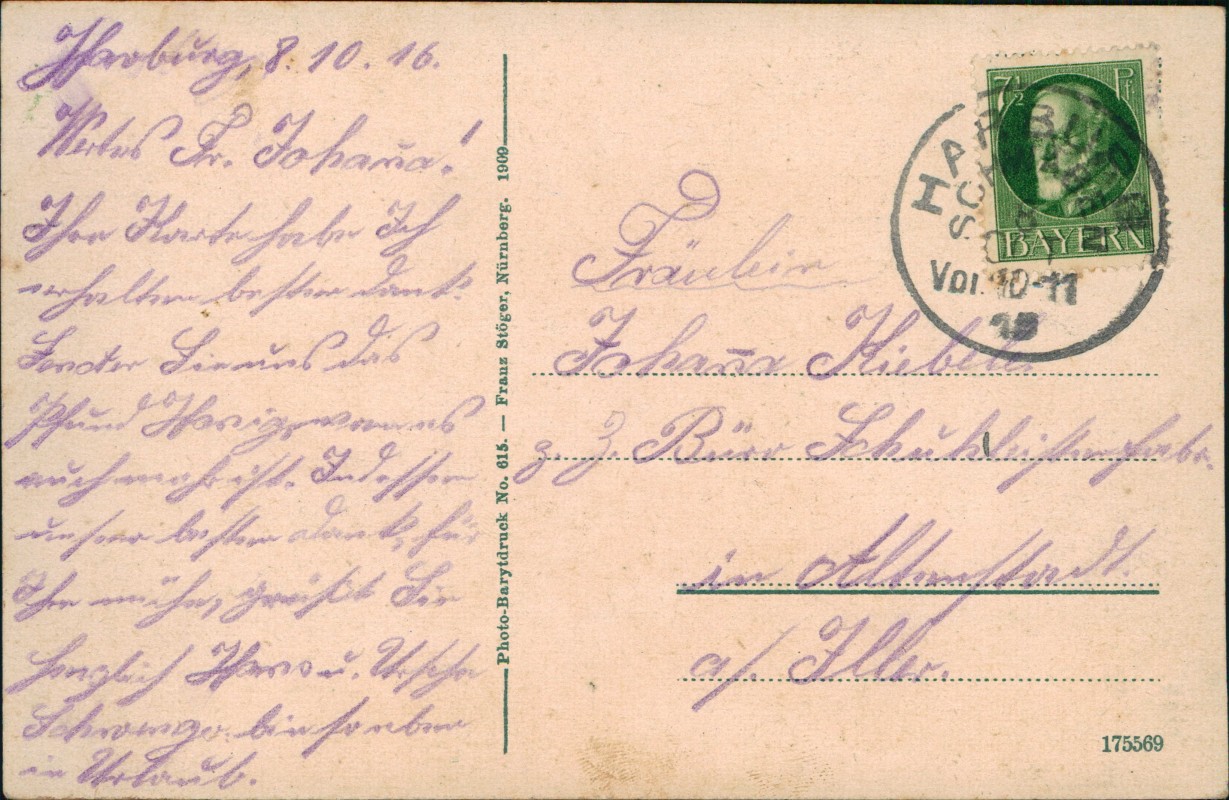 Harburg, 8. 10. 16.
Wertes Fr. Johana!
Ihre Karte habe Ich
erhalten besten Dank.
Senden Sie uns das
Pfund Honig, wenn es
auch mehr ist. Indessen
unser besten Dank, für
Ihre mühe, grüßt Sie
herzlich u.
bin soeben
in Urlaub.
Photo-Barytdruck No. 615. — Franz Stöger, Nürnberg. 1909
7½ Pf
BAYERN
HARBURG
SCHWABEN
Vor. 10-11
Fräulein
Johana Kieble
z. Z. Büro Schuhleistenfabr.
in Altenstadt.
a/. Iller.
175569